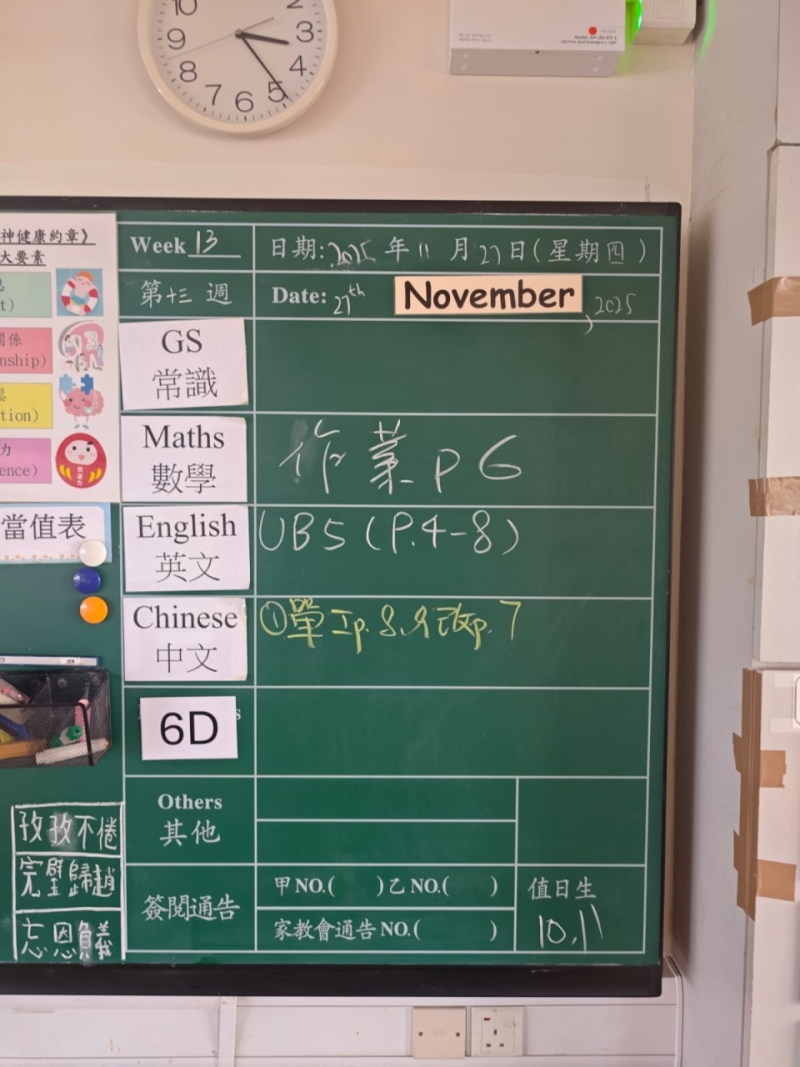 10
9
8
7
6
5
4
3
2
神健康約章》
大要素
t)
關係
nship)
tion)
力
ence)
當值表
Week 13
日期: 2025 年 11 月 27 日 ( 星期 四 )
第十三 週
Date: 27th November, 2025
GS
常識
Maths
數學
作業 p 6
English
英文
UB5 (P.4-8)
Chinese
中文
①單工p.8、改p.7
6D
Others
其他
簽閱通告
甲NO.( )乙NO.( )
家教會通告NO.( )
值日生
10,11
孜孜不倦
完璧歸趙
忘恩負義